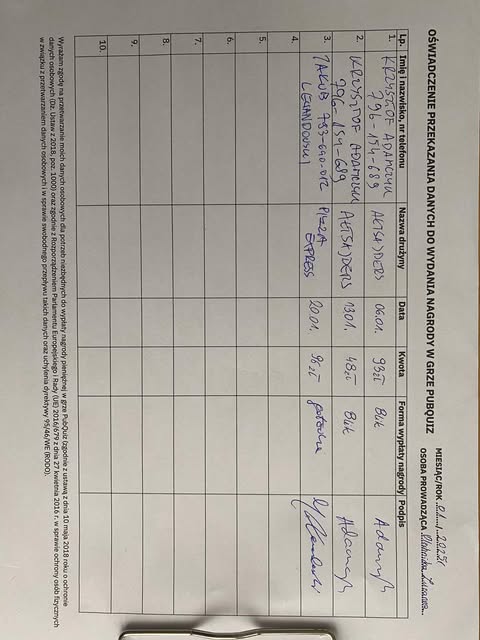 OŚWIADCZENIE PRZEKAZANIA DANYCH DO WYDANIA NAGRODY W GRZE PUBQUIZ
MIESIĄC/ROK
OSOBA PROWADZĄCA
Lp. Imię i nazwisko, nr telefonu Nazwa drużyny Data Kwota Forma wypłaty nagrody Podpis
1. KRZYSZTOF ADAMCZYK 06.01. 93zł Blik
796-154-689
2. KRZYSZTOF ADAMCZYK 13.01. 48zł Blik
796-154-689
3. JAKUB 793-640-012 PIZZA 20.01. 96zł
LEWANDOWSKI EXPRESS
4.
5.
6.
7.
8.
9.
10.
Wyrażam zgodę na przetwarzanie moich danych osobowych dla potrzeb niezbędnych do wypłaty nagrody pieniężnej w grze PubQuiz (zgodnie z ustawą z dnia 10 maja 2018 roku o ochronie
danych osobowych (Dz. Ustaw z 2018, poz. 1000) oraz zgodnie z Rozporządzeniem Parlamentu Europejskiego i Rady (UE) 2016/679 z dnia 27 kwietnia 2016 r. w sprawie ochrony osób fizycznych
w związku z przetwarzaniem danych osobowych i w sprawie swobodnego przepływu takich danych oraz uchylenia dyrektywy 95/46/WE (RODO).